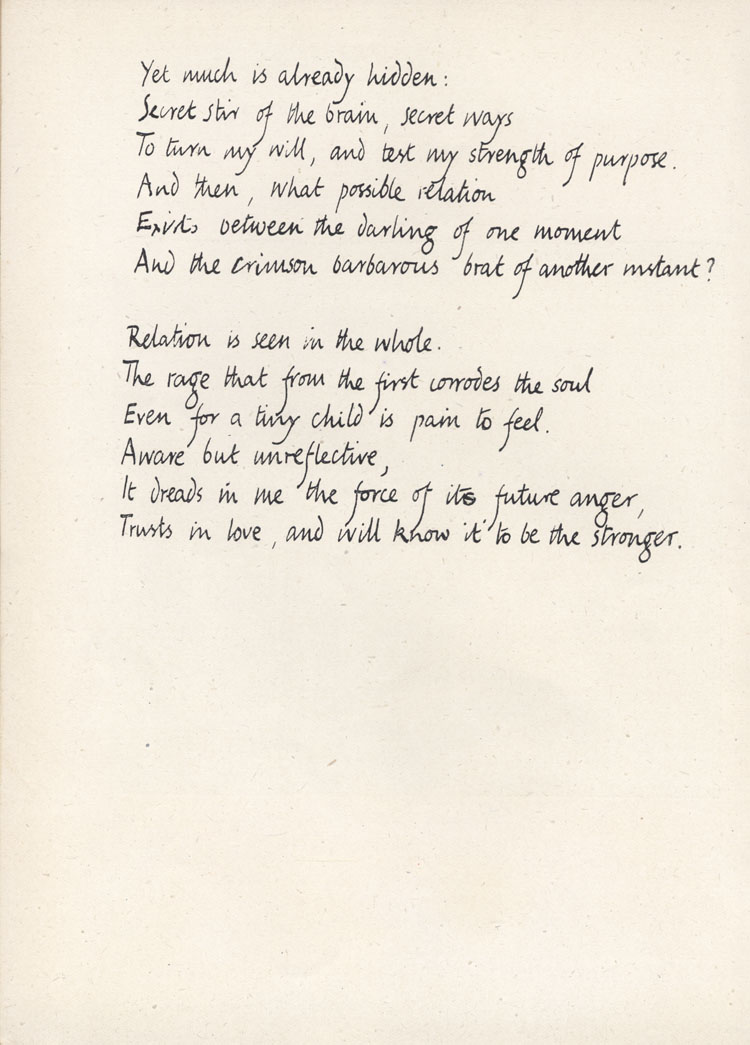 Yet much is already hidden:
Secret stir of the brain, secret ways
To turn my will, and test my strength of purpose.
And then, what possible relation
Exists between the darling of one moment
And the crimson barbarous brat of another instant?
Relation is seen in the whole.
The rage that from the first corrodes the soul
Even for a tiny child is pain to feel.
Aware but unreflective,
It dreads in me the force of its future anger,
Trusts in love, and will know it to be the stronger.